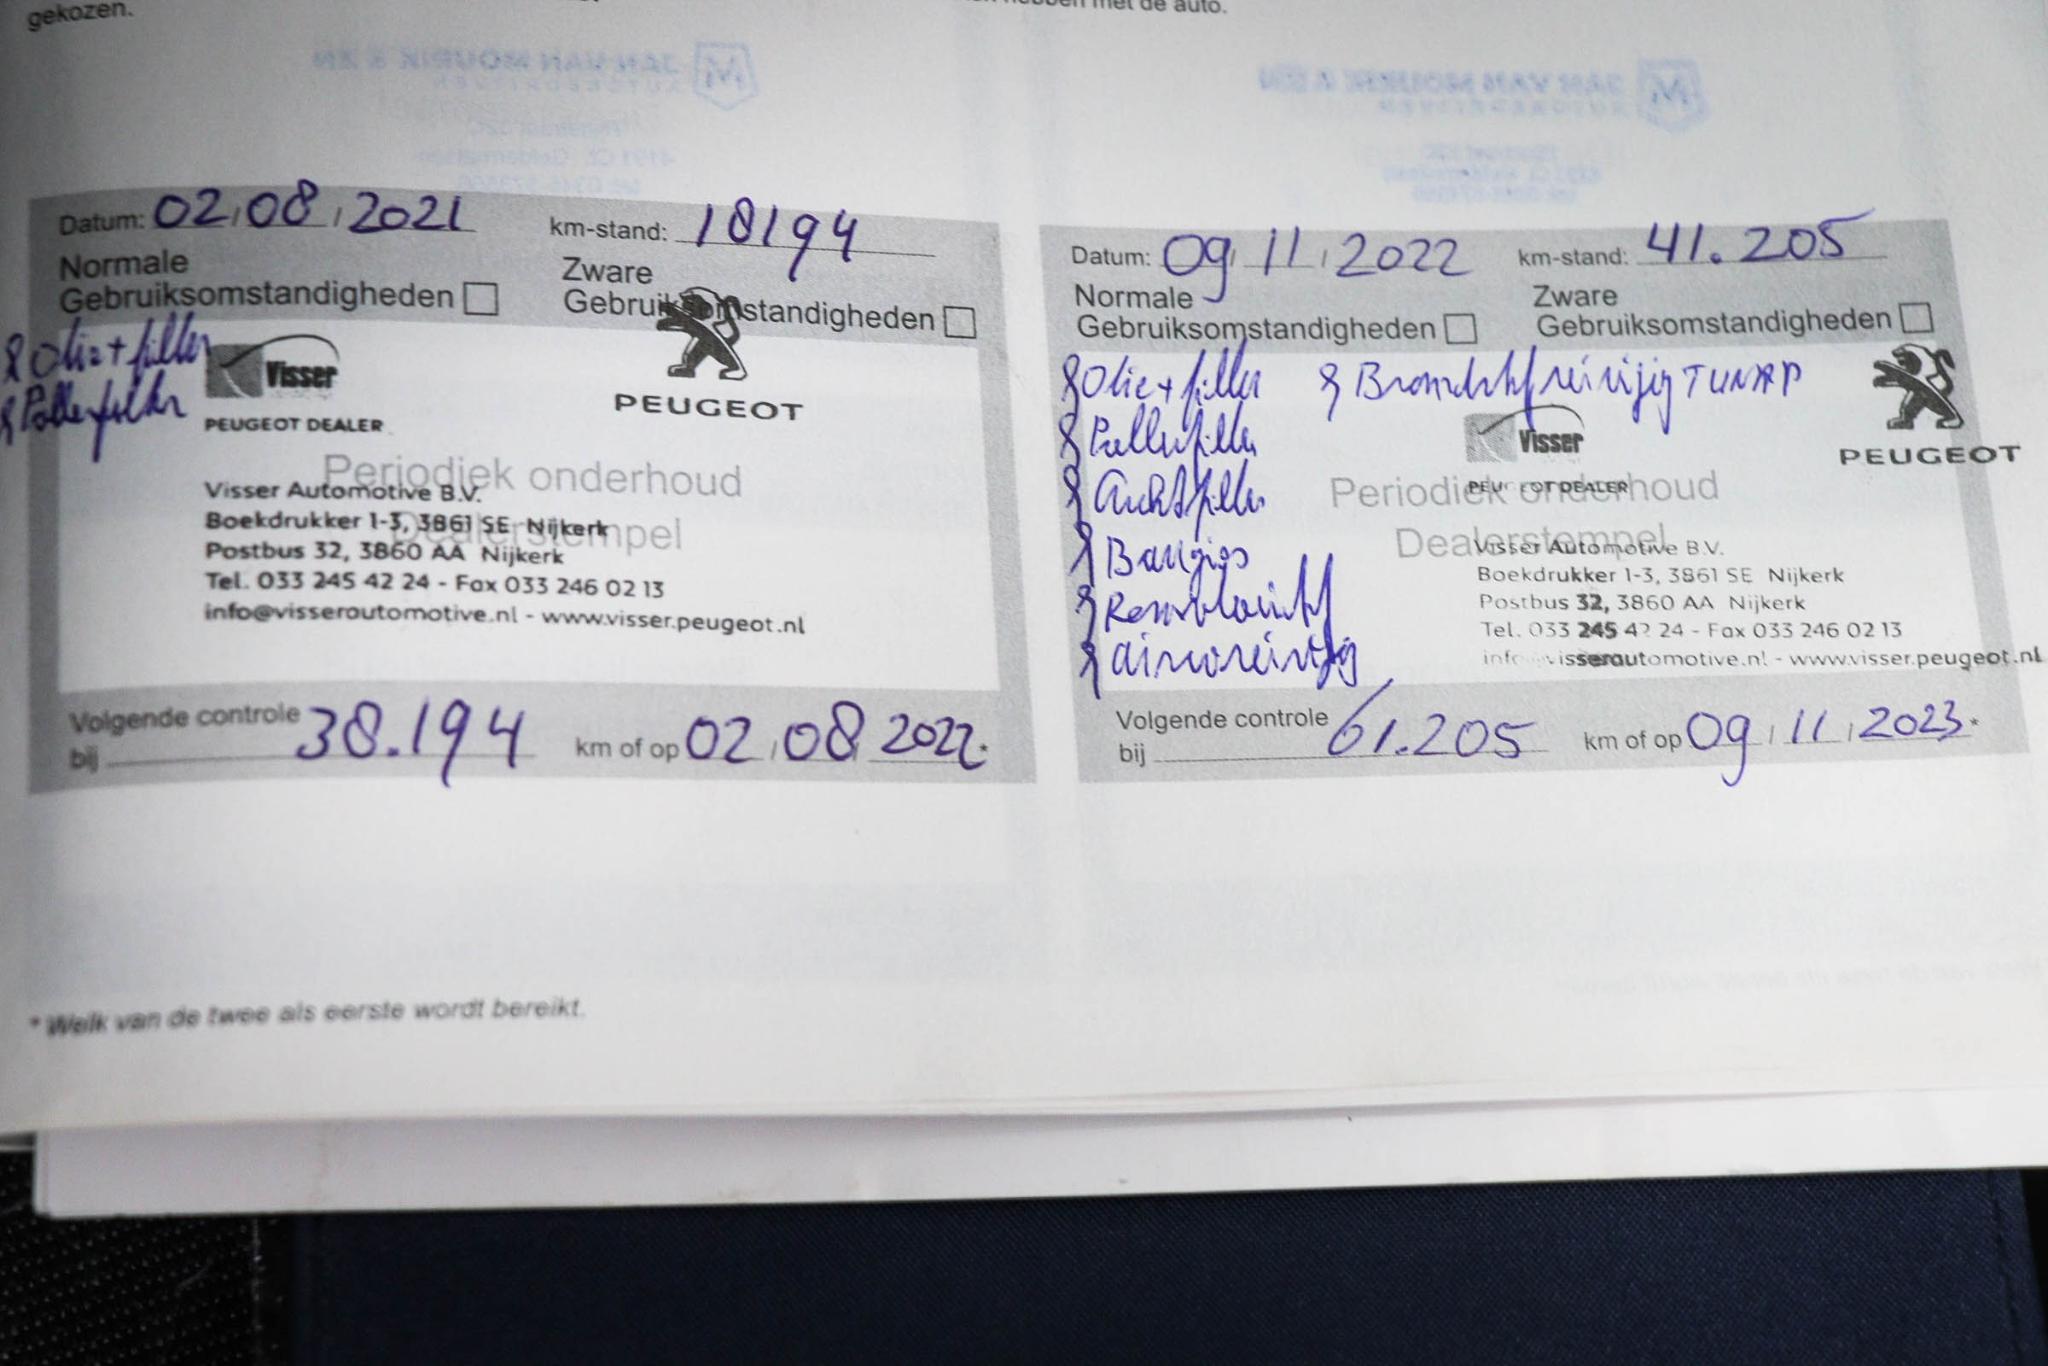 gekozen.
hebben met de auto.
Datum: 02/08/2021 km-stand: 18194
Normale
Gebruiksomstandigheden
Zware
Gebruiksomstandigheden
Olie + filter
Pollenfilter
Visser
PEUGEOT DEALER
PEUGEOT
Periodiek onderhoud
Dealerstempel
Visser Automotive B.V.
Boekdrukker 1-3, 3861 SE Nijkerk
Postbus 32, 3860 AA Nijkerk
Tel. 033 245 42 24 - Fax 033 246 02 13
info@visserautomotive.nl - www.visser.peugeot.nl
Volgende controle
bij 38.194 km of op 02/08/2022*
Datum: 09/11/2022 km-stand: 41.205
Normale
Gebruiksomstandigheden
Zware
Gebruiksomstandigheden
Olie + filter
TUNAP
Pollenfilter
Luchtfilter
Bougies
Remvloeistof
aircoreiniging
Visser
PEUGEOT DEALER
PEUGEOT
Periodiek onderhoud
Dealerstempel
Visser Automotive B.V.
Boekdrukker 1-3, 3861 SE Nijkerk
Postbus 32, 3860 AA Nijkerk
Tel. 033 245 42 24 - Fax 033 246 02 13
info@visserautomotive.nl - www.visser.peugeot.nl
Volgende controle
bij 61.205 km of op 09/11/2023*
* Welk van de twee als eerste wordt bereikt.